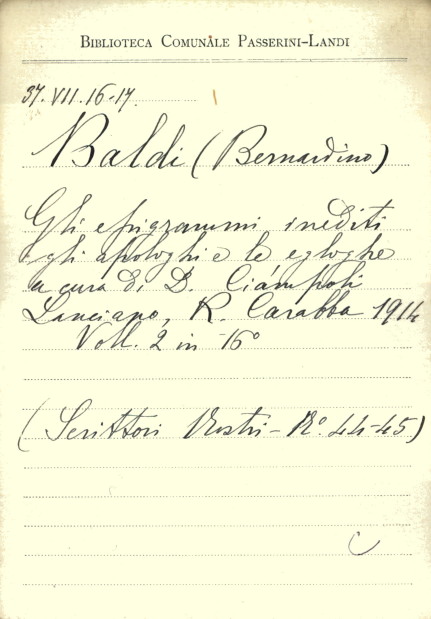 BIBLIOTECA COMUNALE PASSERINI-LANDI
37.VII.16-17
Baldi (Bernardino)
Gli epigrammi inediti
gli apologhi e le egloghe
a cura di D. Ciàmpoli
Lanciano, R. Carabba 1914
Voll. 2 in 16°
(Scrittori Nostri - N.° 44-45)